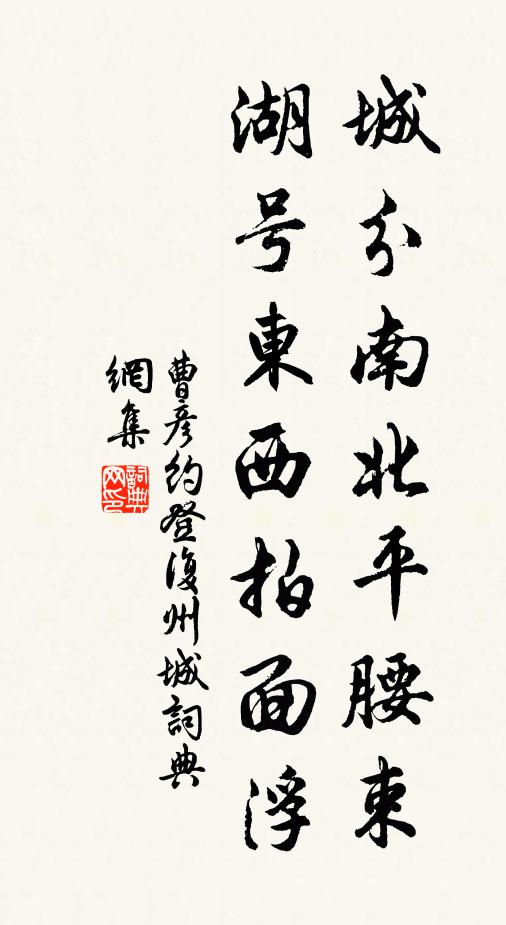 城分南北平腰束
湖号東西拍面浮
曹彦約登復州城詞典
網集
詞典
网印